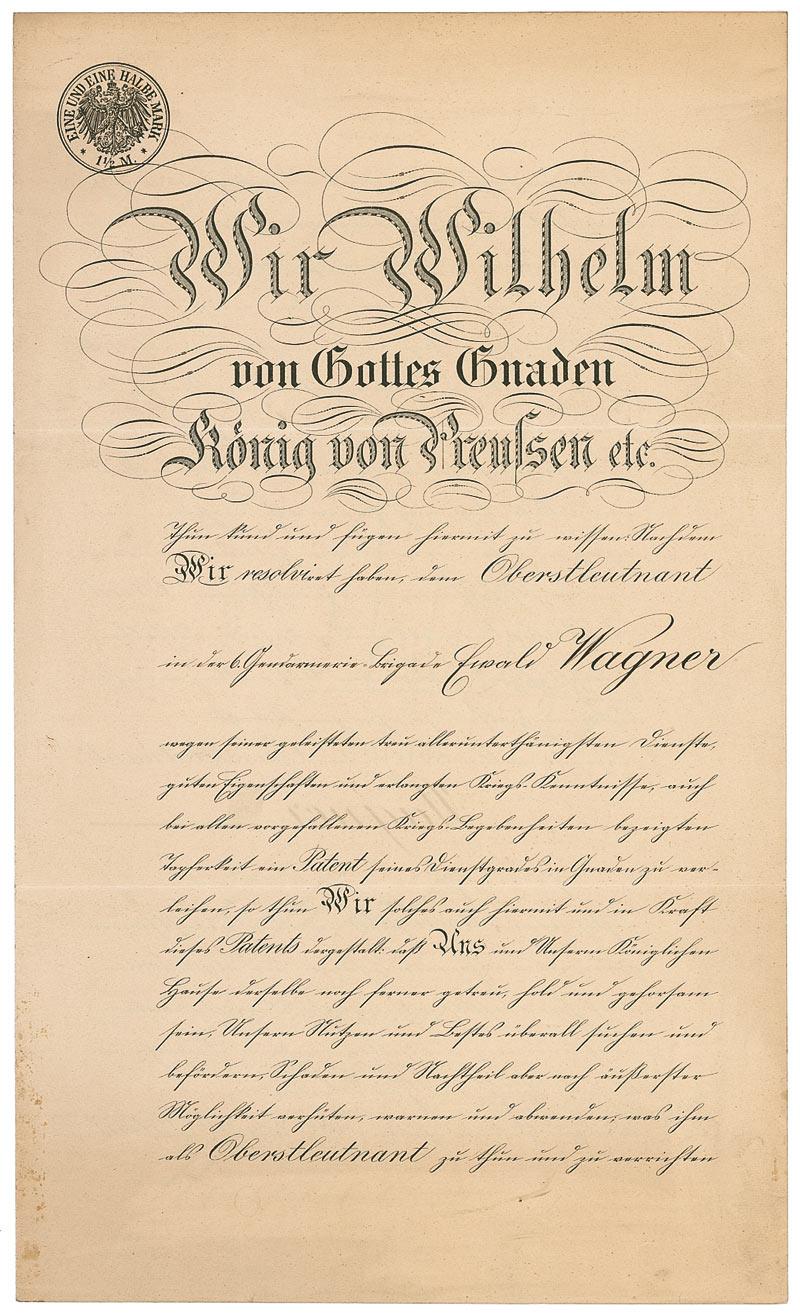 EINE UND EINE HALBE MARK
* 1½ M. *
Wir Wilhelm
von Gottes Gnaden
König von Preuſsen etc.
Thun kund und fügen hiermit zu wissen: Nachdem
Wir resolviret haben, dem Oberstleutnant
in der 6. Gendarmerie-Brigade Ewald Wagner
wegen seiner geleisteten treu allerunterthänigsten Dienste,
guten Eigenschaften und erlangten Kriegs-Kenntnisse, auch
bei allen vorgefallenen Kriegs-Begebenheiten bezeigten
Tapferkeit ein Patent seines Dienstgrades in Gnaden zu ver-
leihen, so thun Wir solches auch hiermit und in Kraft
dieses Patents dergestalt: daß Uns und Unserm Königlichen
Hause derselbe noch ferner getreu, hold und gehorsam
sein, Unsern Nutzen und Bestes überall suchen und
befördern, Schaden und Nachtheil aber nach äußerster
Möglichkeit verhüten, warnen und abwenden, was ihm
als Oberstleutnant zu thun und zu verrichten